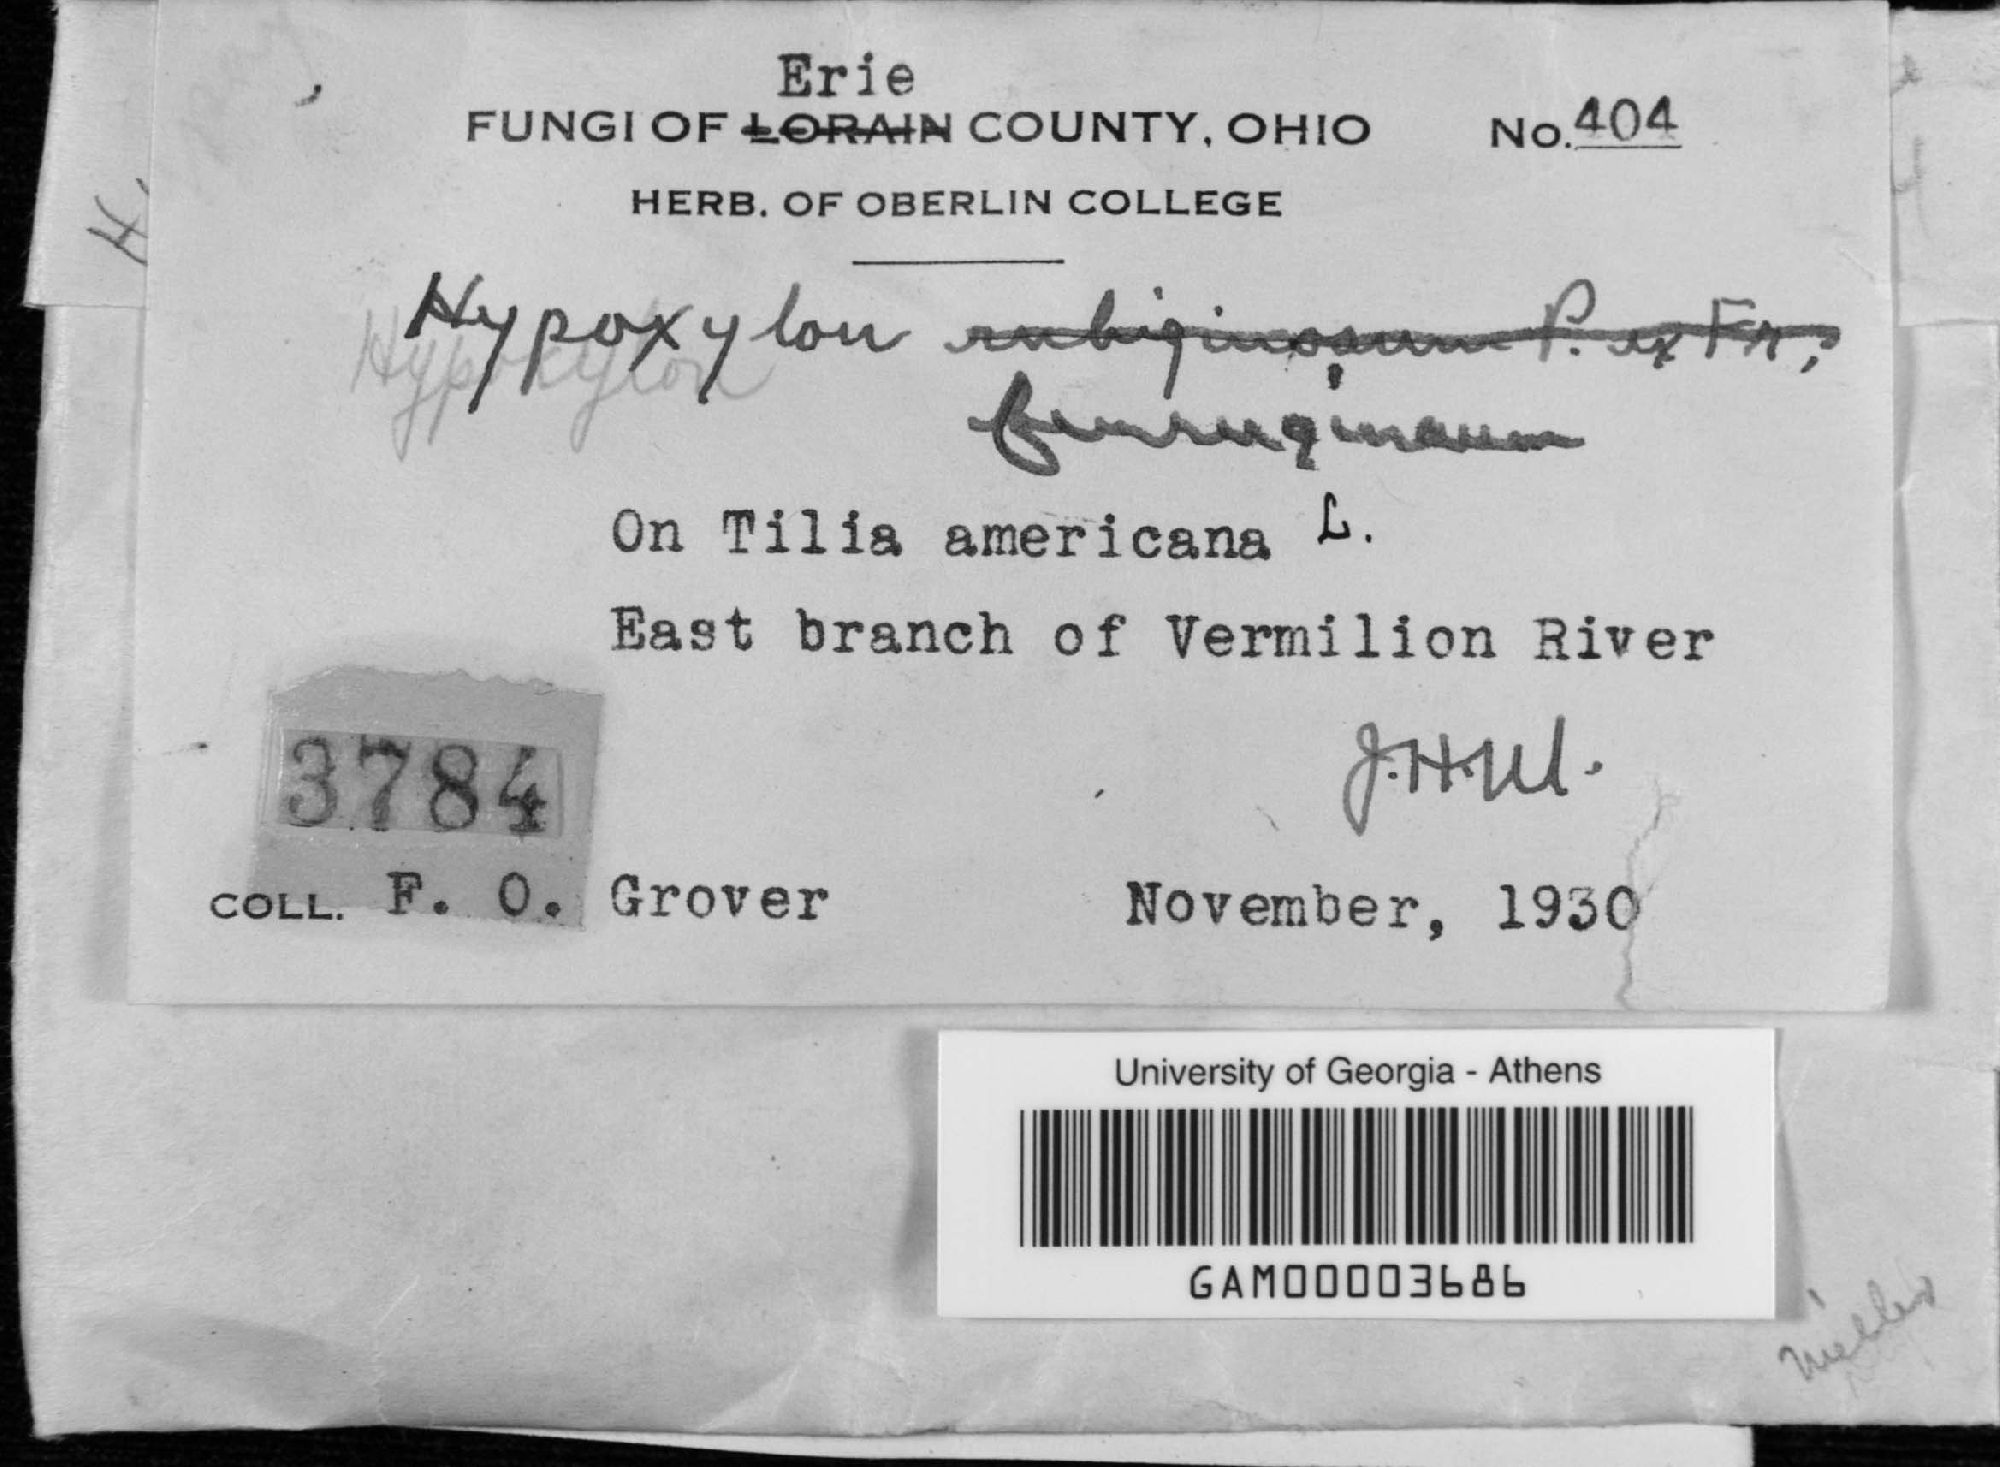 Erie
FUNGI OF LORAIN COUNTY, OHIO No. 404
HERB. OF OBERLIN COLLEGE
Hypoxylon rubiginosum P. ex Fr.
Hypoxylon
On Tilia americana L.
East branch of Vermilion River
J.H.M.
3784
COLL. F. O. Grover November, 1930
University of Georgia - Athens
GAM00003686
Miller
H